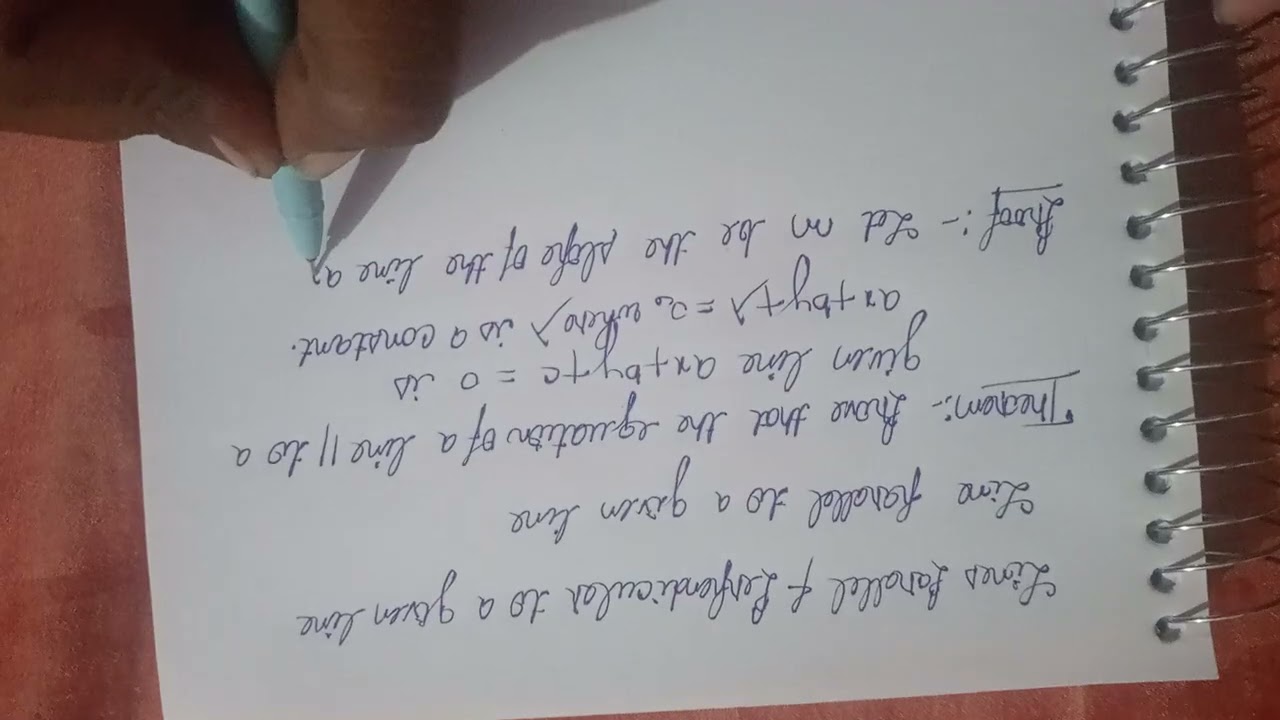 Lines Parallel & Perpendicular to a given line
Line parallel to a given line
Theorem:- Prove that the equation of a line || to a
given line ax+by+c = 0 is
ax+by+λ = 0, where λ is a constant.
Proof:- Let m be the slope of the line a